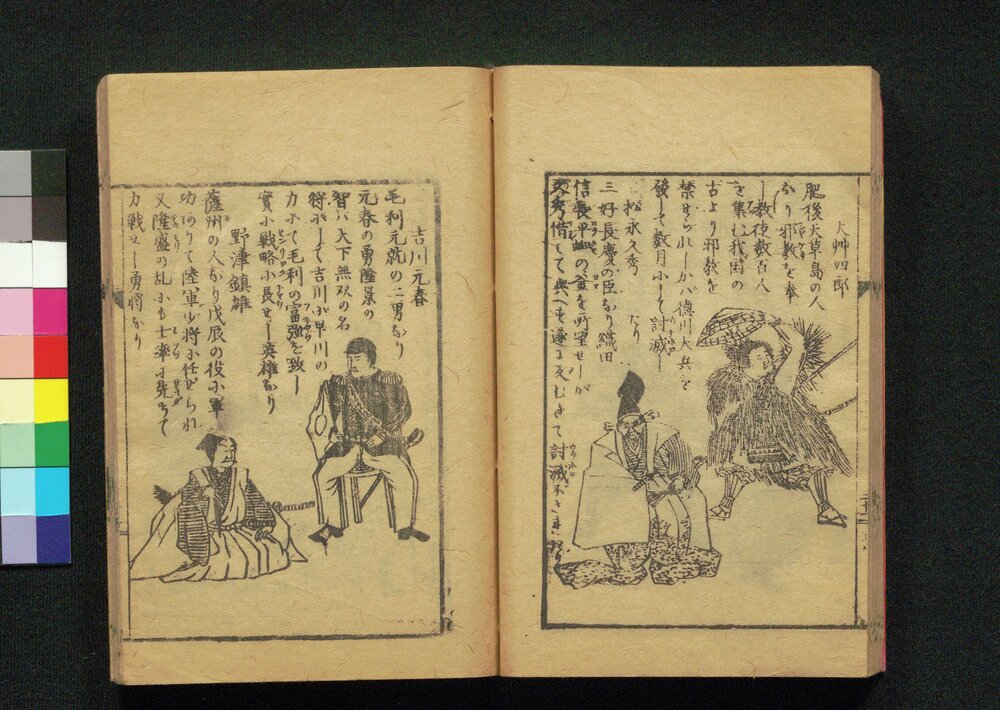 大艸四郎
肥後天草島の人
なり邪教を奉
し教徒数百人
を集む我国の
古より邪教を
禁せられしかバ徳川大兵を
發して数月にして討滅し
たり
松永久秀
三好長慶の臣なり織田
信長平蜘の釜を所望せしが
久秀惜して與へず遂に反むきて討滅
吉川元春
毛利元就の二男なり
元春の勇隆景の
智ハ天下無双の名
将にして吉川小早川の
力にて毛利の富強を致し
實に戦略に長せし英雄なり
野津鎮雄
薩州の人なり戊辰の役に軍
功ありて陸軍少将に任ぜられ
又隆盛の乱にも士卒に先だちて
力戦せし勇将なり